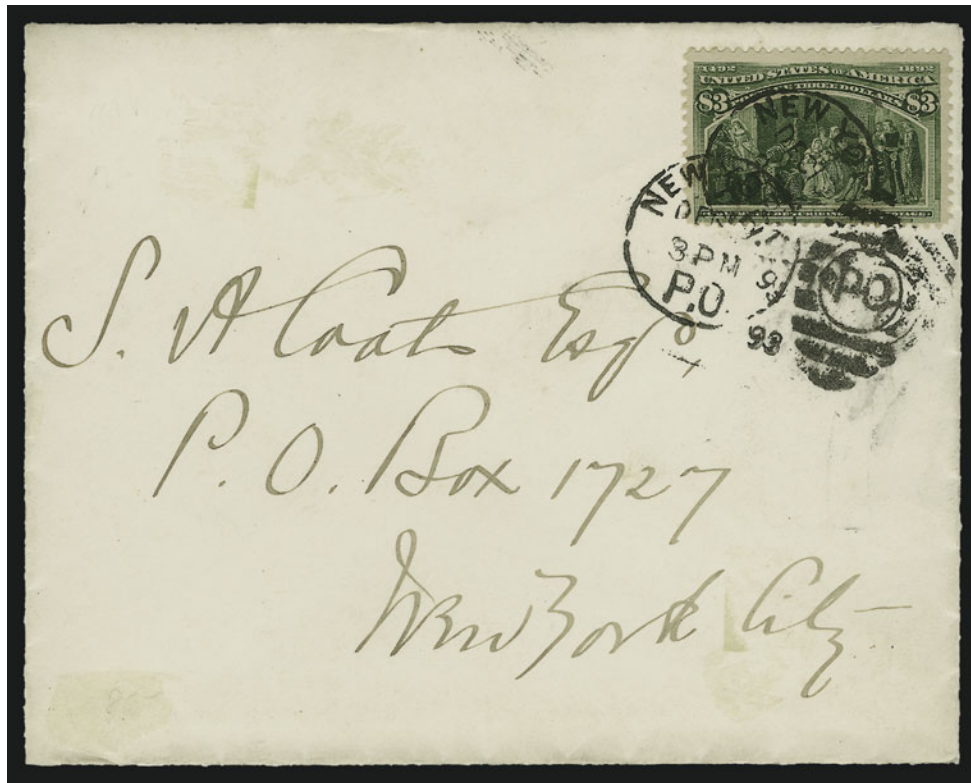 1492 1892
UNITED STATES OF AMERICA
$3 POSTAGE THREE DOLLARS $3
NEW YO
NEW
3 PM 93
P.O
P.O
93
S. A Coats Esqr
P. O. Box 1727
New York City